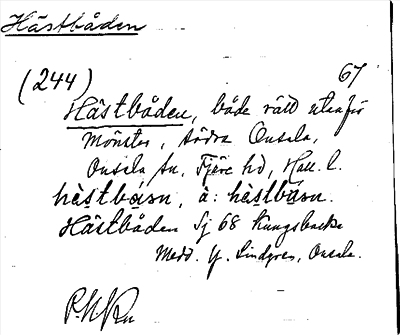 Hästbåden
(244) 67
Hästbåden, både rätt utanför
Mönster, södra Onsala,
Onsala sn, Fjäre hd, Hall. l.
hästbåsn, ä: hästbåsn.
Hästbåden Sj 68 Kungsbacka
Medd. Y. Lindgren, Onsala.